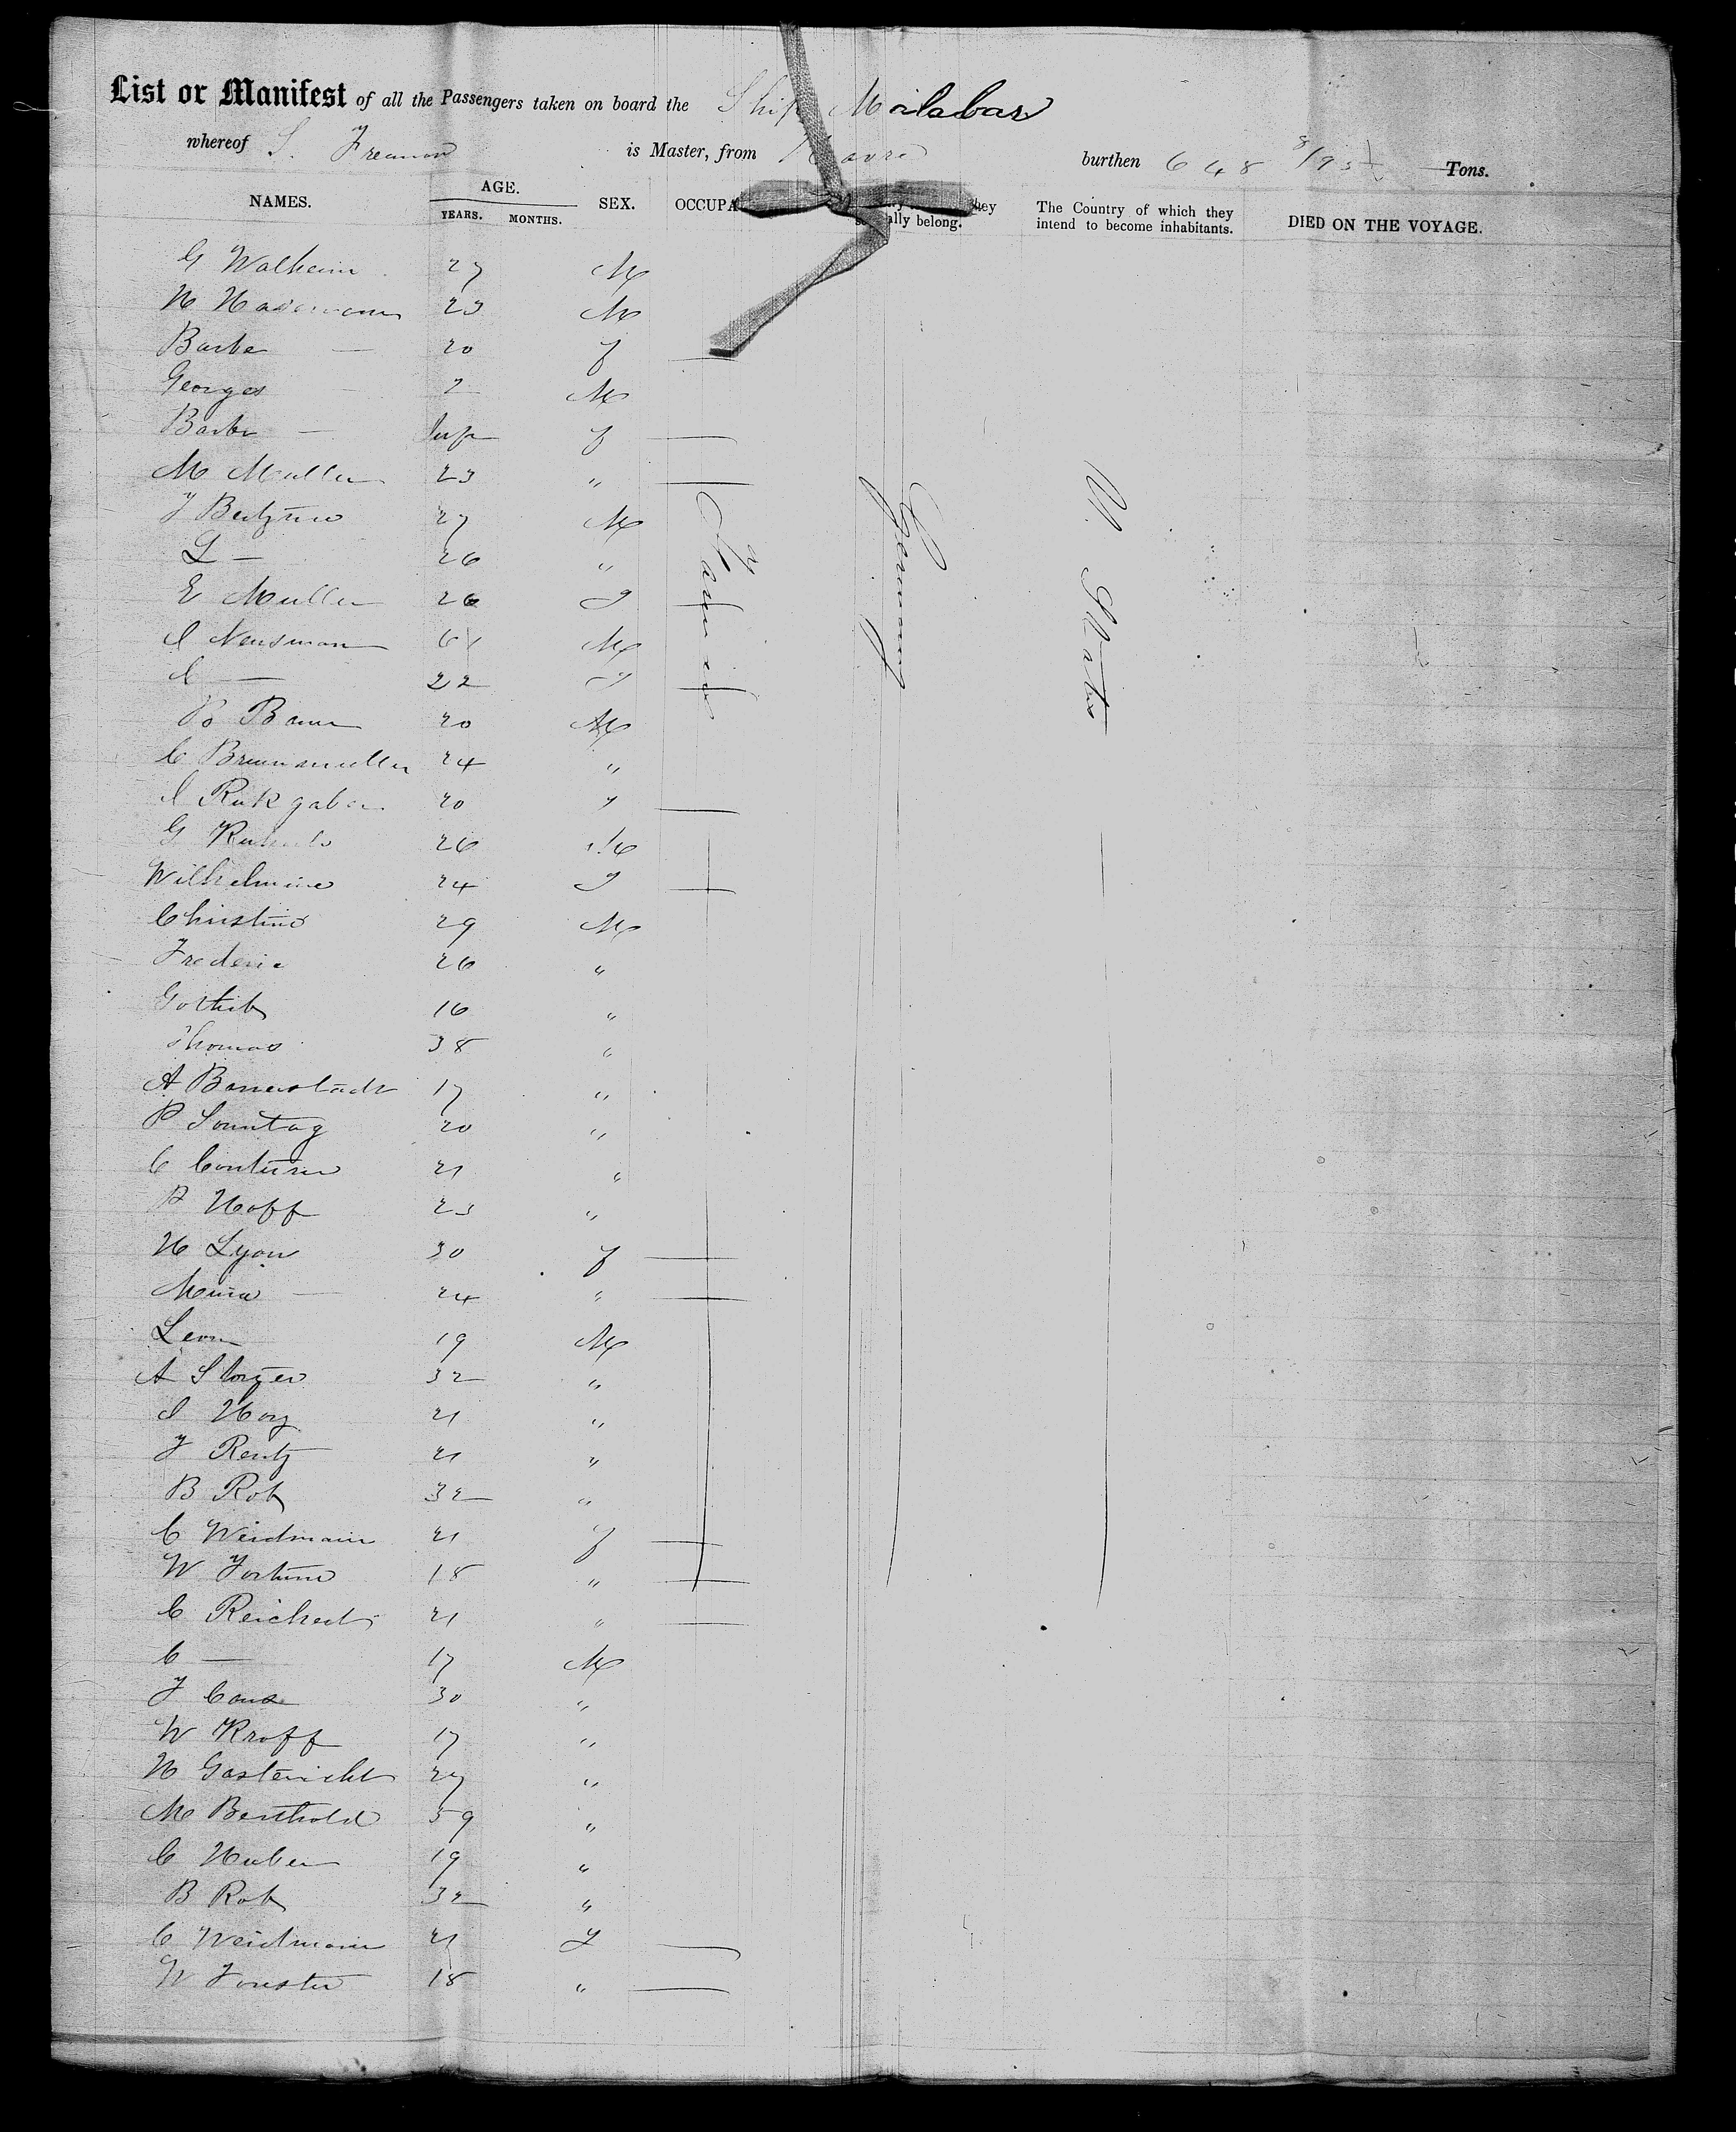 List or Manifest of all the Passengers taken on board the Ship Malabar
whereof S. Freeman is Master, from Havre burthen 648 8/95 Tons.
NAMES. AGE. YEARS. MONTHS. SEX. OCCUPA ally belong. The Country of which they intend to become inhabitants. DIED ON THE VOYAGE.
G Walheim 27 M
H 23 M
Barbe — 20 f —
Georges 2 M
Barbe — Inf f —
M Muller 23 " —
J 27 M
L — 26 "
E Muller 26 f —
I Neusman 61 M
C — 22 f —
B Baur 20 M
C Brunnmuller 24 "
I Rukgaber 20 f —
G 26 M
Wilhelmine 24 f —
Christine 29 M
Frederic 26 "
Gottlieb 16 "
Thomas 38 "
A Bauerstadt 17 "
P Sonntag 20 "
C Couturier 21 "
P Hoff 23 "
H Lyon 30 f —
Maria — 24 " —
Leon 19 M
A Storzer 32 "
I Hoy 21 "
J Rentz 21 "
B Rob 32 "
C Weidmann 21 f —
W Fortune 18 " —
C Reichert 21 " —
C — 17 M
J Cans 30 "
W Kroff 17 "
H Gastericht 27 "
M Berthold 59 "
C Huber 19 "
B Rob 32 "
C Weidmann 21 f —
W Forster 18 " —
Farmers
Germany
U. States